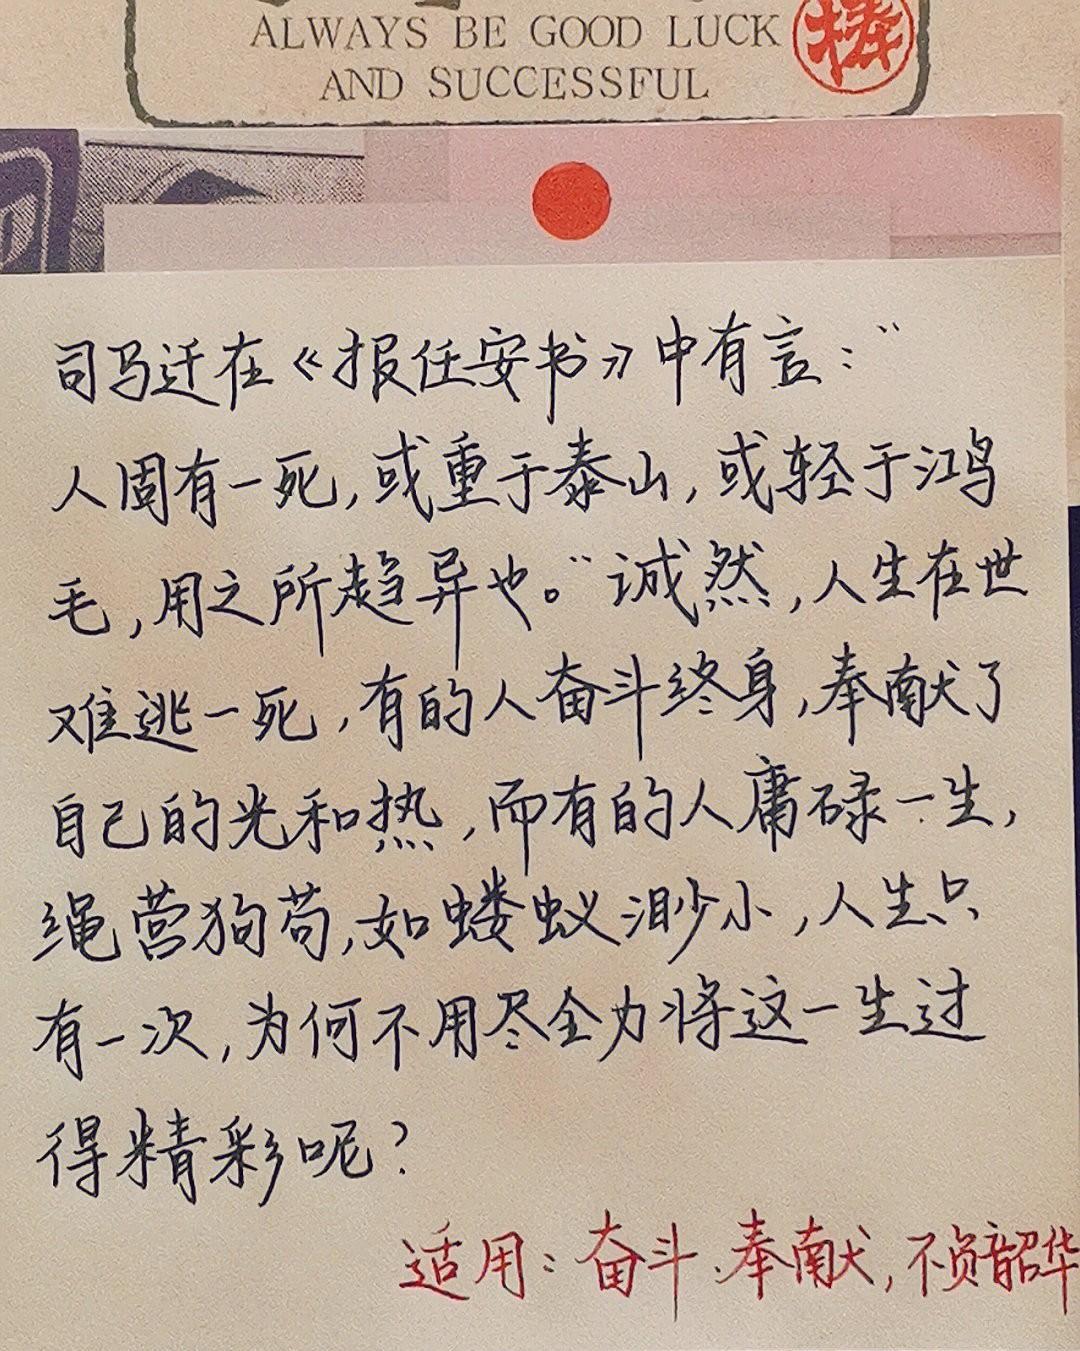 ALWAYS BE GOOD LUCK
AND SUCCESSFUL
棒
司马迁在《报任安书》中有言：“
人固有一死，或重于泰山，或轻于鸿
毛，用之所趋异也。”诚然，人生在世
难逃一死，有的人奋斗终身，奉献了
自己的光和热，而有的人庸碌一生，
绳营狗苟，如蝼蚁渺小，人生只
有一次，为何不用尽全力将这一生过
得精彩呢？
适用：奋斗、奉献，不负韶华